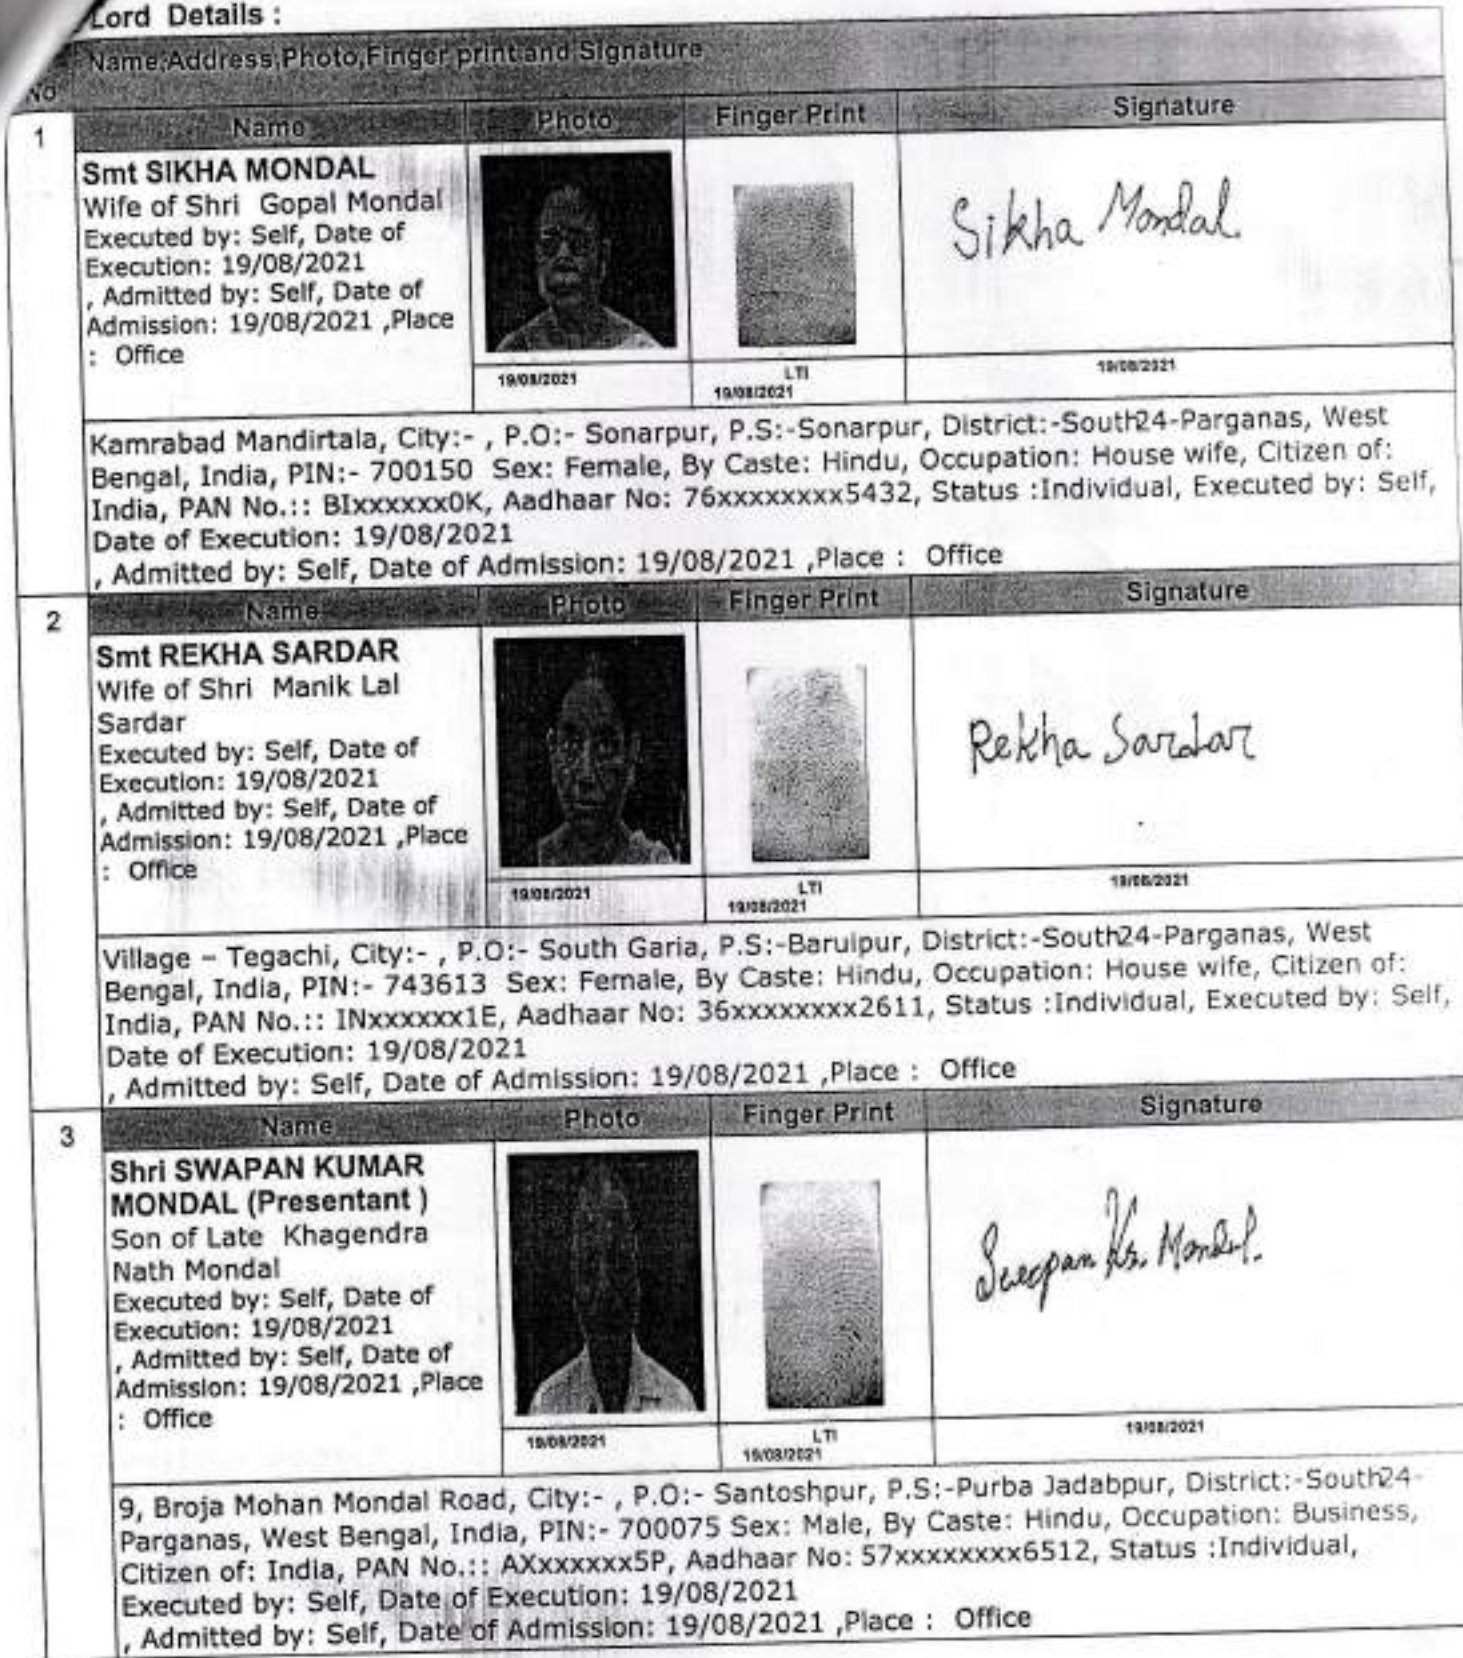 Lord Details :
Name,Address,Photo,Finger print and Signature
No
1
Name Photo Finger Print Signature
Smt SIKHA MONDAL
Wife of Shri Gopal Mondal
Executed by: Self, Date of
Execution: 19/08/2021
, Admitted by: Self, Date of
Admission: 19/08/2021 ,Place
: Office
Sikha Mondal
19/08/2021
LTI
19/08/2021
19/08/2021
Kamrabad Mandirtala, City:- , P.O:- Sonarpur, P.S:-Sonarpur, District:-South24-Parganas, West
Bengal, India, PIN:- 700150 Sex: Female, By Caste: Hindu, Occupation: House wife, Citizen of:
India, PAN No.:: BIxxxxxx0K, Aadhaar No: 76xxxxxxxx5432, Status :Individual, Executed by: Self,
Date of Execution: 19/08/2021
, Admitted by: Self, Date of Admission: 19/08/2021 ,Place : Office
2
Name Photo Finger Print Signature
Smt REKHA SARDAR
Wife of Shri Manik Lal
Sardar
Executed by: Self, Date of
Execution: 19/08/2021
, Admitted by: Self, Date of
Admission: 19/08/2021 ,Place
: Office
Rekha Sardar
19/08/2021
LTI
19/08/2021
19/08/2021
Village – Tegachi, City:- , P.O:- South Garia, P.S:-Baruipur, District:-South24-Parganas, West
Bengal, India, PIN:- 743613 Sex: Female, By Caste: Hindu, Occupation: House wife, Citizen of:
India, PAN No.:: INxxxxxx1E, Aadhaar No: 36xxxxxxxx2611, Status :Individual, Executed by: Self,
Date of Execution: 19/08/2021
, Admitted by: Self, Date of Admission: 19/08/2021 ,Place : Office
3
Name Photo Finger Print Signature
Shri SWAPAN KUMAR
MONDAL (Presentant )
Son of Late Khagendra
Nath Mondal
Executed by: Self, Date of
Execution: 19/08/2021
, Admitted by: Self, Date of
Admission: 19/08/2021 ,Place
: Office
Swapan Kr. Mondal.
19/08/2021
LTI
19/08/2021
19/08/2021
9, Broja Mohan Mondal Road, City:- , P.O:- Santoshpur, P.S:-Purba Jadabpur, District:-South24-
Parganas, West Bengal, India, PIN:- 700075 Sex: Male, By Caste: Hindu, Occupation: Business,
Citizen of: India, PAN No.:: AXxxxxxx5P, Aadhaar No: 57xxxxxxxx6512, Status :Individual,
Executed by: Self, Date of Execution: 19/08/2021
, Admitted by: Self, Date of Admission: 19/08/2021 ,Place : Office